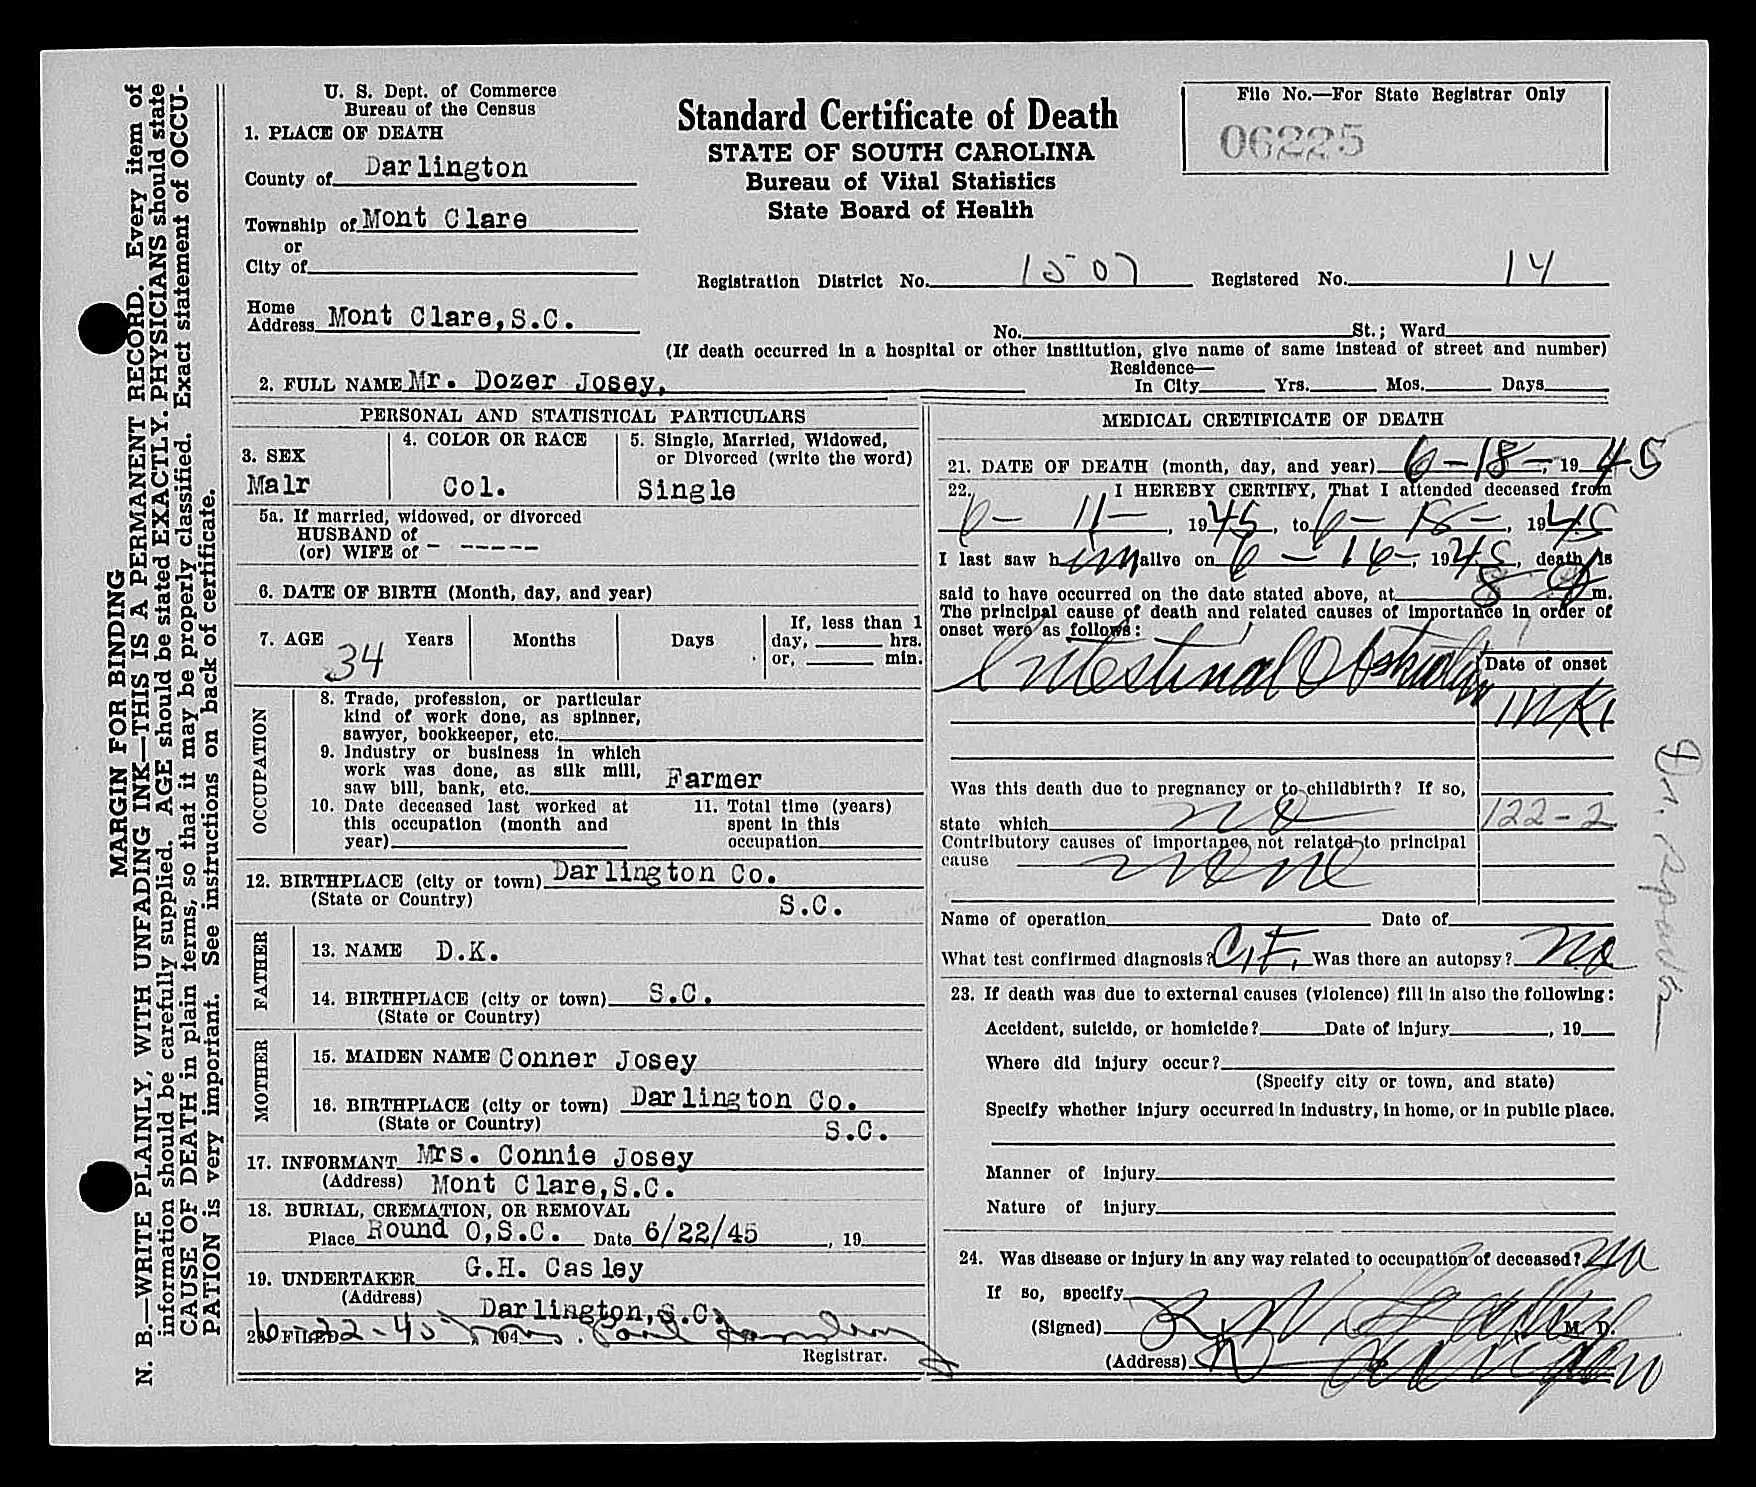 N. B.—WRITE PLAINLY, WITH UNFADING INK—THIS IS A PERMANENT RECORD. Every item of
information should be carefully supplied. AGE should be stated EXACTLY. PHYSICIANS should state
CAUSE OF DEATH in plain terms, so that it may be properly classified. Exact statement of OCCU-
PATION is very important. See instructions on back of certificate.
MARGIN FOR BINDING
U. S. Dept. of Commerce
Bureau of the Census
Standard Certificate of Death
STATE OF SOUTH CAROLINA
Bureau of Vital Statistics
State Board of Health
File No.—For State Registrar Only
06225
1. PLACE OF DEATH
County of Darlington
Township of Mont Clare
or
City of
Home Address Mont Clare,S.C.
Registration District No. 1507 Registered No. 14
No. St.; Ward
(If death occurred in a hospital or other institution, give name of same instead of street and number)
2. FULL NAME Mr. Dozer Josey,
Residence—
In City Yrs. Mos. Days
PERSONAL AND STATISTICAL PARTICULARS
3. SEX
Malr
4. COLOR OR RACE
Col.
5. Single, Married, Widowed,
or Divorced (write the word)
Single
5a. If married, widowed, or divorced
HUSBAND of
(or) WIFE of - -----
6. DATE OF BIRTH (Month, day, and year)
7. AGE 34 Years Months Days
If, less than 1
day, hrs.
or, min.
OCCUPATION
8. Trade, profession, or particular
kind of work done, as spinner,
sawyer, bookkeeper, etc.
9. Industry or business in which
work was done, as silk mill,
saw bill, bank, etc. Farmer
10. Date deceased last worked at
this occupation (month and
year)
11. Total time (years)
spent in this
occupation
12. BIRTHPLACE (city or town) Darlington Co.
(State or Country) S.C.
FATHER
13. NAME D.K.
14. BIRTHPLACE (city or town) S.C.
(State or Country)
MOTHER
15. MAIDEN NAME Conner Josey
16. BIRTHPLACE (city or town) Darlington Co.
(State or Country) S.C.
17. INFORMANT Mrs. Connie Josey
(Address) Mont Clare,S.C.
18. BURIAL, CREMATION, OR REMOVAL
Place Round O,S.C. Date 6/22/45, 19
19. UNDERTAKER G.H. Casley
(Address) Darlington,S.C.
20. FILED 6-22-45, 194 Mrs. Paul
Registrar.
MEDICAL CRETIFICATE OF DEATH
21. DATE OF DEATH (month, day, and year) 6-18-, 1945
22. I HEREBY CERTIFY, That I attended deceased from
6-11-, 1945, to 6-18-, 1945
I last saw him alive on 6-16-, 1945, death is
said to have occurred on the date stated above, at 8 m.
The principal cause of death and related causes of importance in order of
onset were as follows:
Intestinal Obstruction
Date of onset
1 wk
Was this death due to pregnancy or to childbirth? If so,
state which no
122-2
Contributory causes of importance not related to principal
cause none
Name of operation Date of
What test confirmed diagnosis? Was there an autopsy? No
23. If death was due to external causes (violence) fill in also the following:
Accident, suicide, or homicide? Date of injury, 19
Where did injury occur?
(Specify city or town, and state)
Specify whether injury occurred in industry, in home, or in public place.
Manner of injury
Nature of injury
24. Was disease or injury in any way related to occupation of deceased? No
If so, specify
(Signed) M. D.
(Address)
Dr.